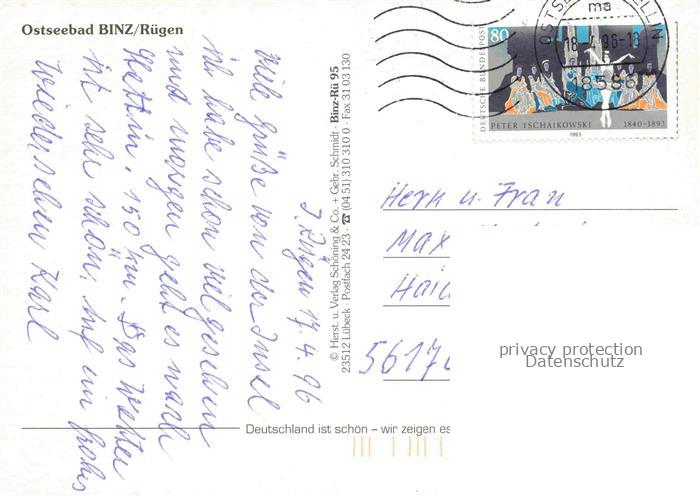 Ostseebad BINZ/Rügen
I. Rügen 17.4.96
Viele Grüße von der Insel
ich habe schon viel gesehen
und morgen geht es nach
Stettin. 150 km. Das Wetter
ist sehr schön, Auf ein frohes
Wiedersehen Karl
© Herst. u. Verlag Schöning & Co. + Gebr. Schmidt · Binz-Rü 95
23512 Lübeck · Postfach 24 23 · ☎ (04 51) 310 310 0 · Fax 31 03 130
Deutschland ist schön – wir zeigen es
80
DEUTSCHE BUNDESPOST
PETER TSCHAIKOWSKI 1840-1893
1993
ma
18.-4.96-18
Herrn u. Frau
Max
Haid
5617
privacy protection
Datenschutz